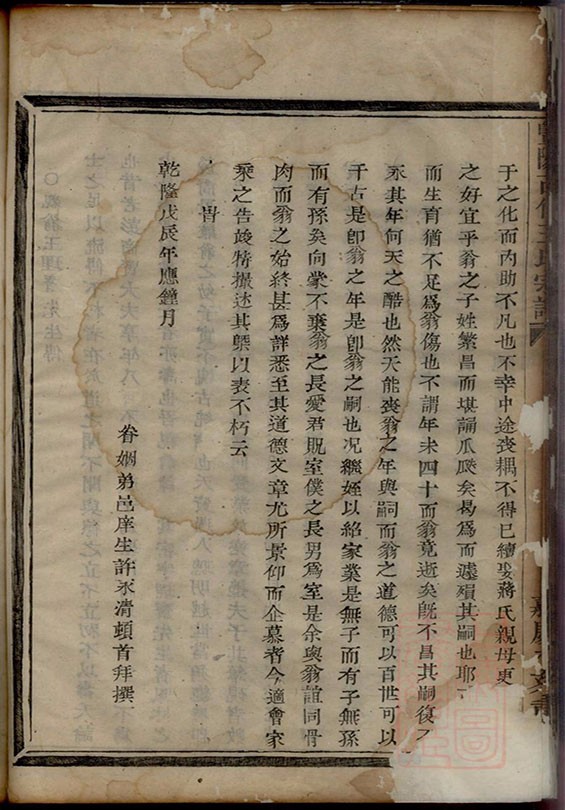 于之化而內助不凡也不幸中途喪耦不得已續娶蔣氏親母更
之好宜乎翁之子姓繁昌而堪誦瓜瓞矣曷為而遽殞其嗣也耶
而生育猶不足為翁傷也不謂年未四十而翁竟逝矣既不昌其嗣復不
永其年何天之酷也然天能喪翁之年與嗣而翁之道德可以百世可以
千古是卽翁之年是卽翁之嗣也况繼姪以紹家業是無子而有子無孫
而有孫矣向蒙不棄翁之長愛君貺室僕之長男為室是余與翁誼同骨
肉而翁之始終甚為詳悉至其道德文章尤所景仰而企慕者今適會家
乘之告竣特撮述其槩以表不朽云
旹
乾隆戊辰年應鐘月
眷姻弟邑庠生許永清頓首拜撰
王氏宗譜